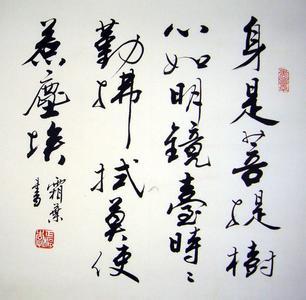 身是菩提樹
心如明鏡臺時〻
勤拂拭莫使
惹塵埃
霜葉
書